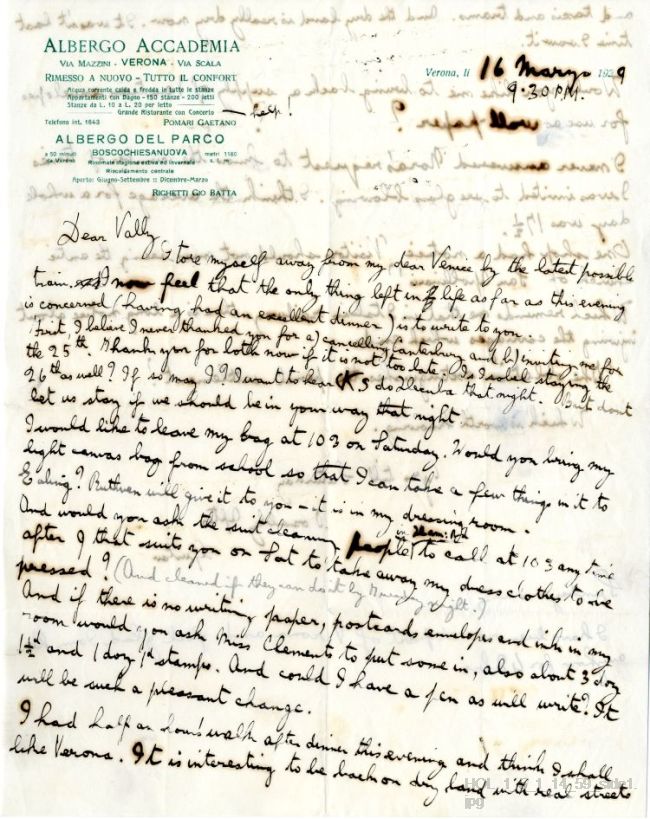 ALBERGO ACCADEMIA
VIA MAZZINI - VERONA - VIA SCALA
RIMESSO A NUOVO - TUTTO IL CONFORT
Acqua corrente calda e fredda in tutte le stanze
Appartamenti con Bagno - 150 stanze - 200 letti
Stanze da L. 10 a L. 20 per letto
Grande Ristorante con Concerto — help!
Telefono int. 1643 POMARI GAETANO
ALBERGO DEL PARCO
a 50 minuti da Verona BOSCOCHIESANUOVA metri 1160 s. m.
Rinomata stagione estiva ed invernale
Riscaldamento centrale
Aperto: Giugno-Settembre :: Dicembre-Marzo
RIGHETTI GIO BATTA
Verona, li 16 Marzo 1929
9.30 P.M.
Dear Vally,
I tore myself away from my dear Venice by the latest possible
train. I now feel that the only thing left in life as far as this evening
is concerned (having had an excellent dinner) is to write to you.
First, I believe I never thanked you for a) cancelling Canterbury and b) inviting me for
the 25th. Thank you for both now if it is not too late. Is Isobel staying the
26th as well? If so may I? I want to hear KS do that night. But don't
let us stay if we should be in your way that night
I would like to leave my bag at 103 on Saturday. Would you bring my
light canvas bag from school so that I can take a few things in it to
Ealing? Ruthven will give it to you – it is in my dressing room.
And would you ask the suit cleaning people to call at 103 any time
after 9 that suits you on Sat to take away my dress clothes to be
pressed? (And cleaned if they can do it by Monday night.)
And if there is no writing paper, postcards envelopes and ink in my
room would you ask Miss Clements to put some in, also about 3 doz
1½d and 1 doz 1d stamps. And could I have a pen as will write? It
will be such a pleasant change.
I had half an hour's walk after dinner this evening and think I shall
like Verona. It is interesting to be back on dry land with real streets
HOL_1_5_1_14_59_side1.
jpg